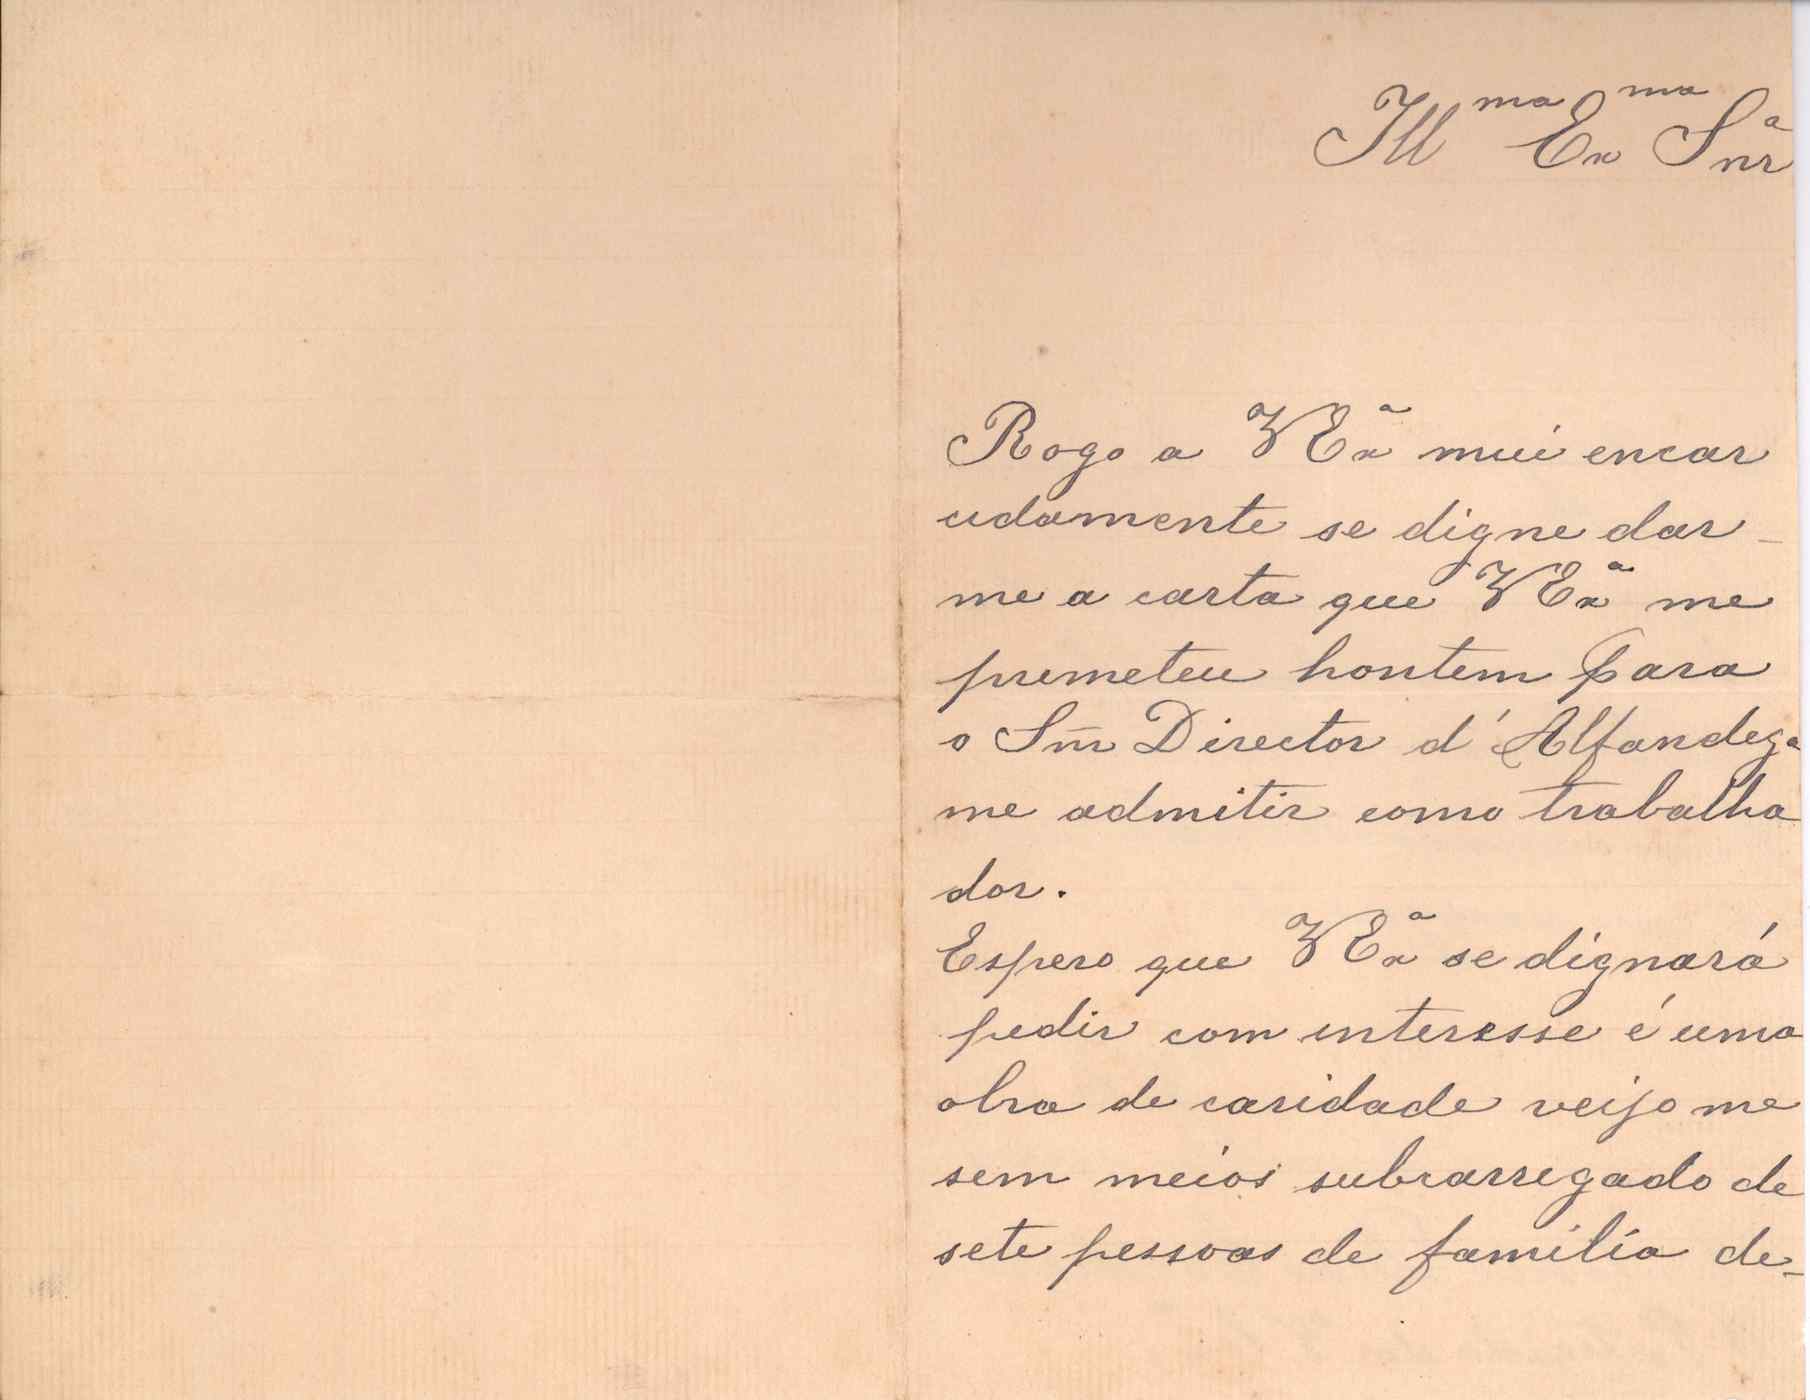 Ill^ma Ex^ma Snr^a
Rogo a V Ex^a mui encar
cidamente se digne dar-
me a carta que V Ex^a me
prometeu hontem para
o Snr Director d'Alfandega
me admitir como trabalha
dor.
Espero que V Ex^a se dignará
pedir com interesse é uma
obra de caridade veijo me
sem meios subcarregado de
sete pessoas de familia de-